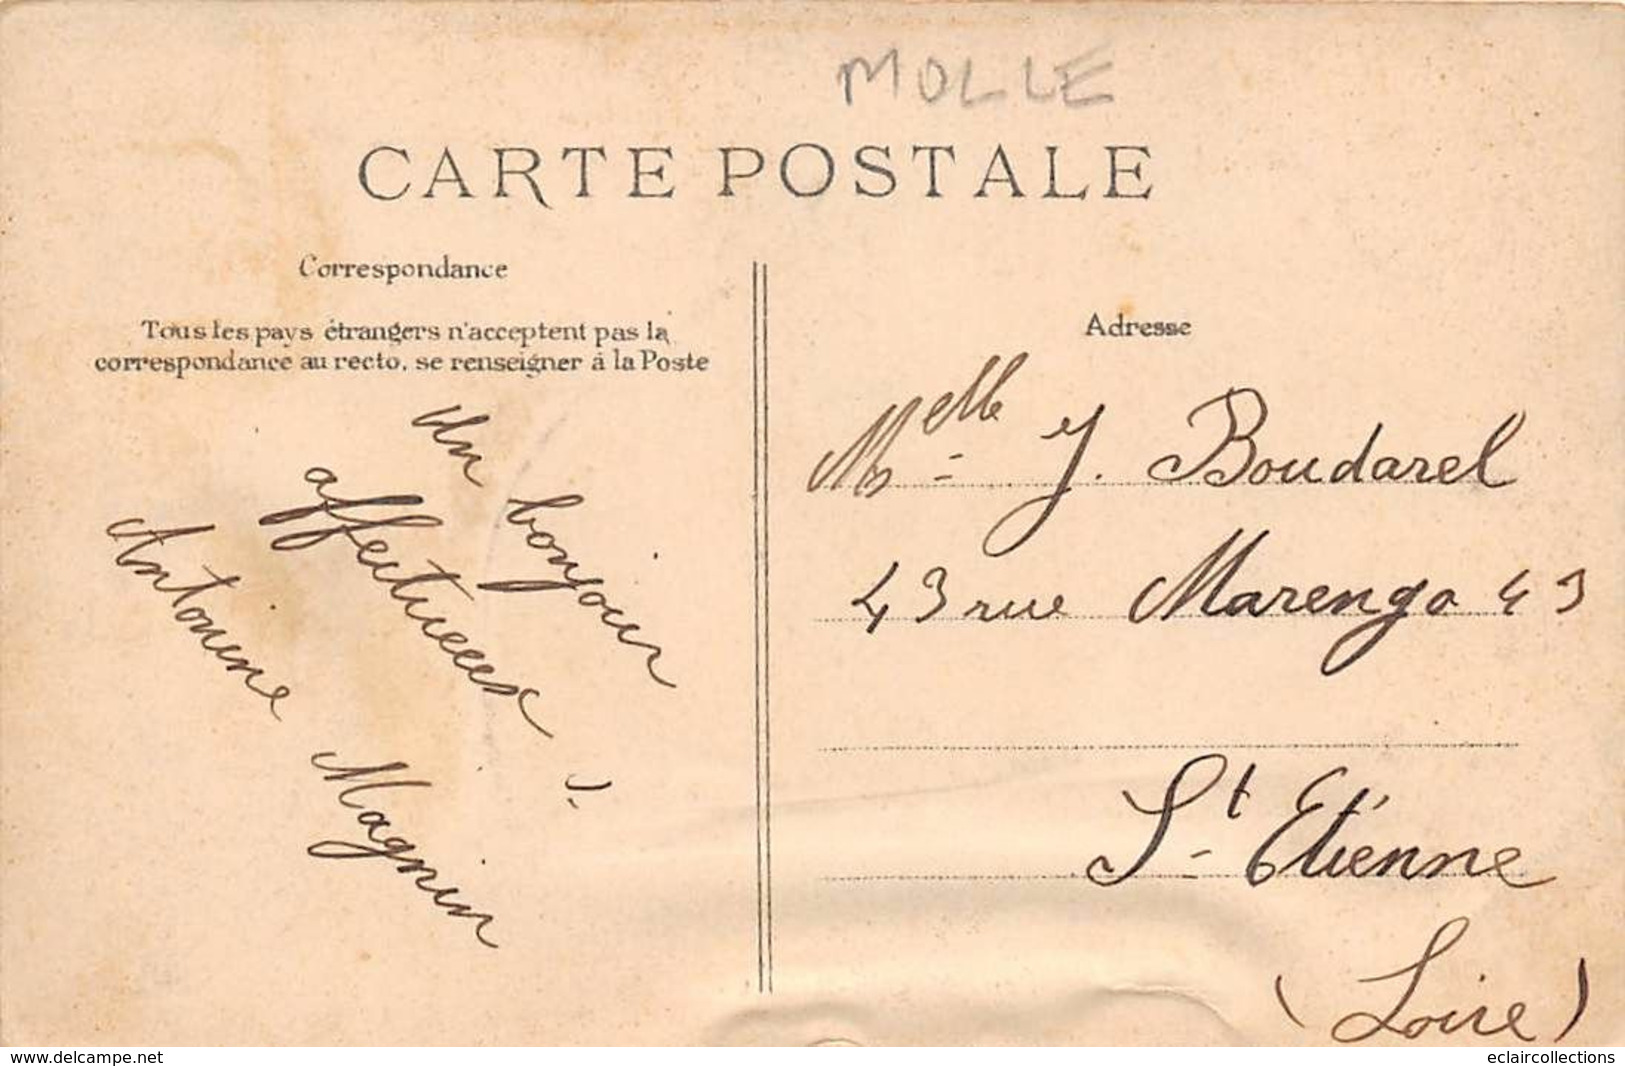 MOLLE
CARTE POSTALE
Correspondance
Tous les pays étrangers n'acceptent pas la
correspondance au recto, se renseigner à la Poste
Un bonjour
affectueux !
Antonine Magnin
Adresse
Melle J. Boudarel
43 rue Marengo 43
St Etienne
(Loire)
www.delcampe.net
eclaircollections